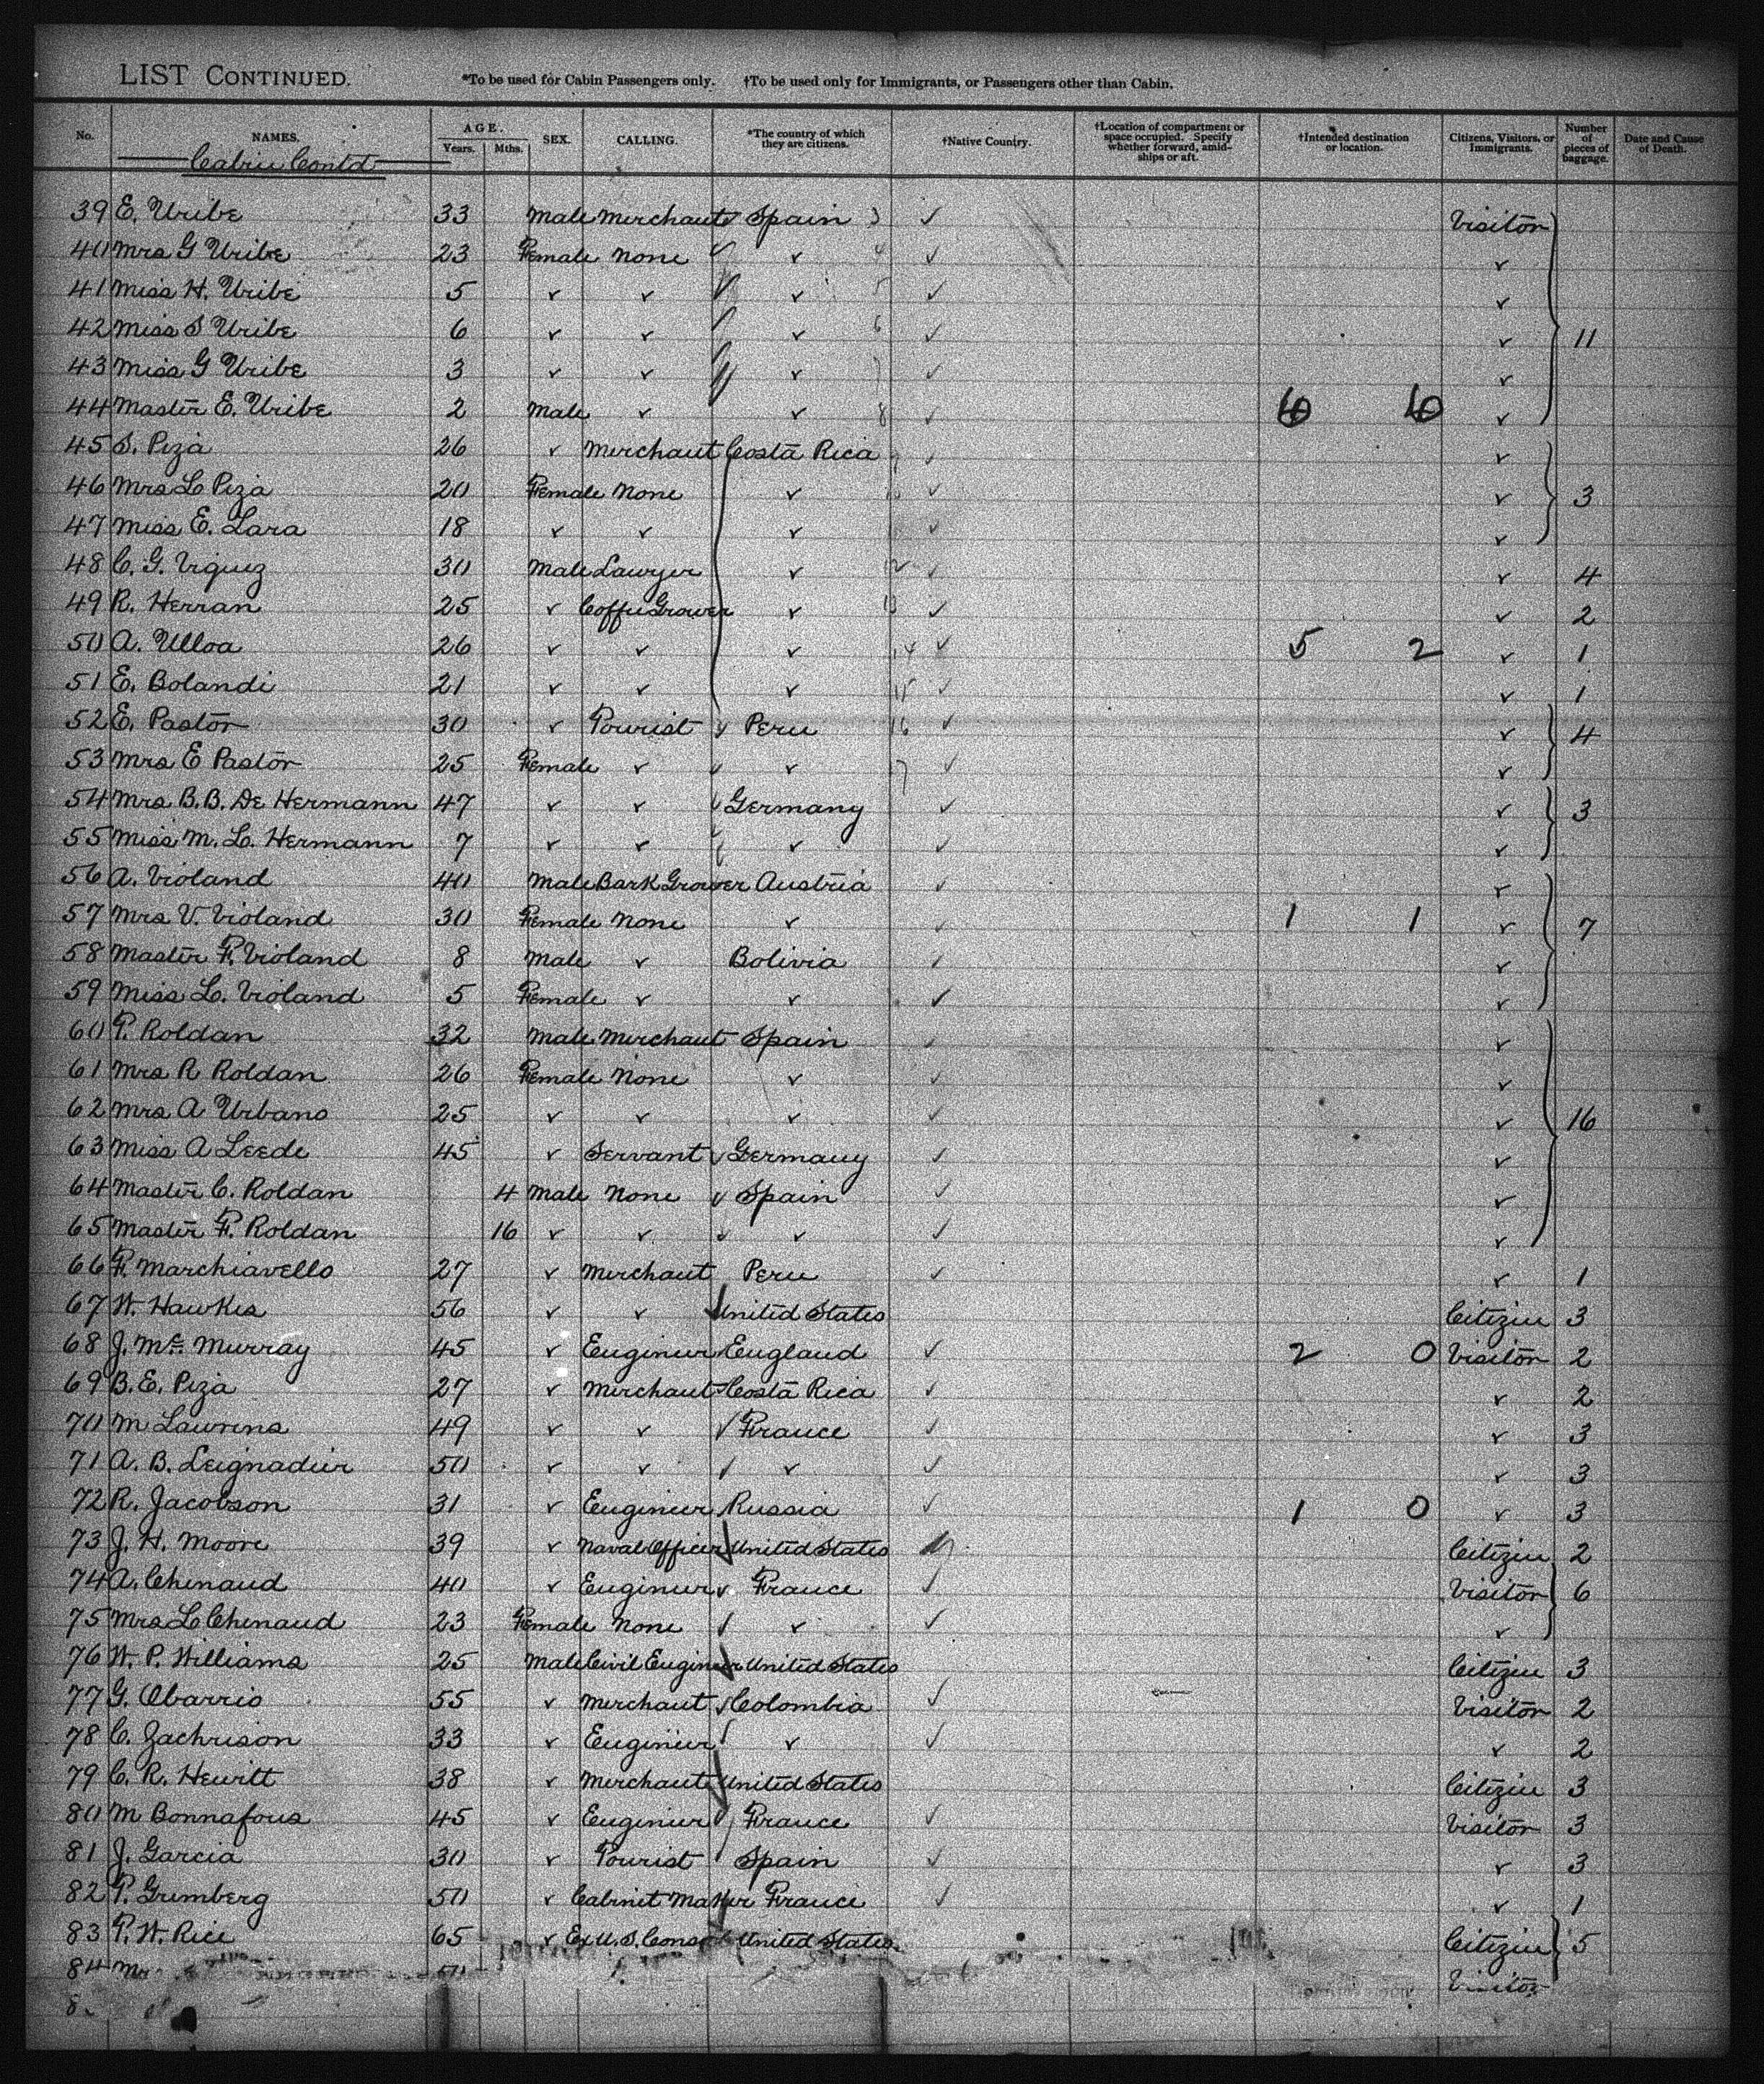 LIST CONTINUED. *To be used for Cabin Passengers only. †To be used only for Immigrants, or Passengers other than Cabin.
No. NAMES. AGE. Years. Mths. SEX. CALLING. *The country of which they are citizens. †Native Country. †Location of compartment or space occupied. Specify whether forward, amidships or aft. †Intended destination or location. Citizens, Visitors, or Immigrants. Number of pieces of baggage. Date and Cause of Death.
Cabin Contd
39 E. Uribe 33 Male Merchant Spain 3 ✓ Visitor
40 Mrs G Uribe 23 Female None ✓ ✓ 4 ✓ ✓
41 Miss H. Uribe 5 ✓ ✓ ✓ ✓ 5 ✓ ✓
42 Miss S Uribe 6 ✓ ✓ ✓ ✓ 6 ✓ ✓ 11
43 Miss G Uribe 3 ✓ ✓ ✓ ✓ 7 ✓ ✓
44 Master E. Uribe 2 Male ✓ ✓ 8 ✓ ✓
45 S. Piza 26 ✓ Merchant Costa Rica ✓ ✓
46 Mrs L Piza 20 Female None ✓ ✓ ✓ 3
47 Miss E. Lara 18 ✓ ✓ ✓ ✓ ✓
48 C. G. Viquez 30 Male Lawyer ✓ 12 ✓ ✓ 4
49 R. Herran 25 ✓ Coffee Grower ✓ 13 ✓ ✓ 2
50 A. Ulloa 26 ✓ ✓ ✓ 14 ✓ 5 2 ✓ 1
51 E. Bolandi 21 ✓ ✓ ✓ 15 ✓ ✓ 1
52 E. Pastor 30 ✓ Tourist ✓ Peru 16 ✓ ✓ 4
53 Mrs E Pastor 25 Female ✓ ✓ ✓ 17 ✓ ✓
54 Mrs B. B. De Hermann 47 ✓ ✓ ✓ Germany ✓ ✓ 3
55 Miss M. L. Hermann 7 ✓ ✓ ✓ ✓ ✓
56 A. Violand 40 Male Bark Grower Austria ✓ ✓
57 Mrs V. Violand 30 Female None ✓ ✓ 1 1 ✓ 7
58 Master F. Violand 8 Male ✓ Bolivia ✓ ✓
59 Miss L. Violand 5 Female ✓ ✓ ✓ ✓
60 P. Roldan 32 Male Merchant Spain ✓ ✓
61 Mrs R Roldan 26 Female None ✓ ✓ ✓
62 Mrs A Urbano 25 ✓ ✓ ✓ ✓ ✓ 16
63 Miss A Leede 45 ✓ Servant ✓ Germany ✓ ✓
64 Master C. Roldan 4 Male None ✓ Spain ✓ ✓
65 Master F. Roldan 16 ✓ ✓ ✓ ✓ ✓ ✓
66 F. Marchiavello 27 ✓ Merchant Peru ✓ ✓ 1
67 W. Hawkes 56 ✓ ✓ ✓ United States Citizen 3
68 J. Mc Murray 45 ✓ Engineer England ✓ 2 0 Visitor 2
69 B. E. Piza 27 ✓ Merchant Costa Rica ✓ ✓ 2
70 M Laurens 49 ✓ ✓ ✓ France ✓ ✓ 3
71 A. B. Leignadier 50 ✓ ✓ ✓ ✓ ✓ ✓ 3
72 R. Jacobson 31 ✓ Engineer Russia ✓ 1 0 ✓ 3
73 J. H. Moore 39 ✓ Naval Officer United States Citizen 2
74 A. Chenaud 40 ✓ Engineer ✓ France ✓ Visitor 6
75 Mrs L Chenaud 23 Female None ✓ ✓ ✓ ✓
76 W. P. Williams 25 Male Civil Engineer United States Citizen 3
77 G. Obarrio 55 ✓ Merchant ✓ Colombia ✓ Visitor 2
78 C. Zachrison 33 ✓ Engineer ✓ ✓ ✓ ✓ 2
79 C. R. Hewitt 38 ✓ Merchant United States Citizen 3
80 M Bonnafous 45 ✓ Engineer ✓ France ✓ Visitor 3
81 J. Garcia 30 ✓ Tourist Spain ✓ ✓ 3
82 P. Grumberg 50 ✓ Cabinet Maker France ✓ ✓ 1
83 P. W. Rice 65 ✓ Ex U. S. Consul United States Citizen 5
84 Visitor